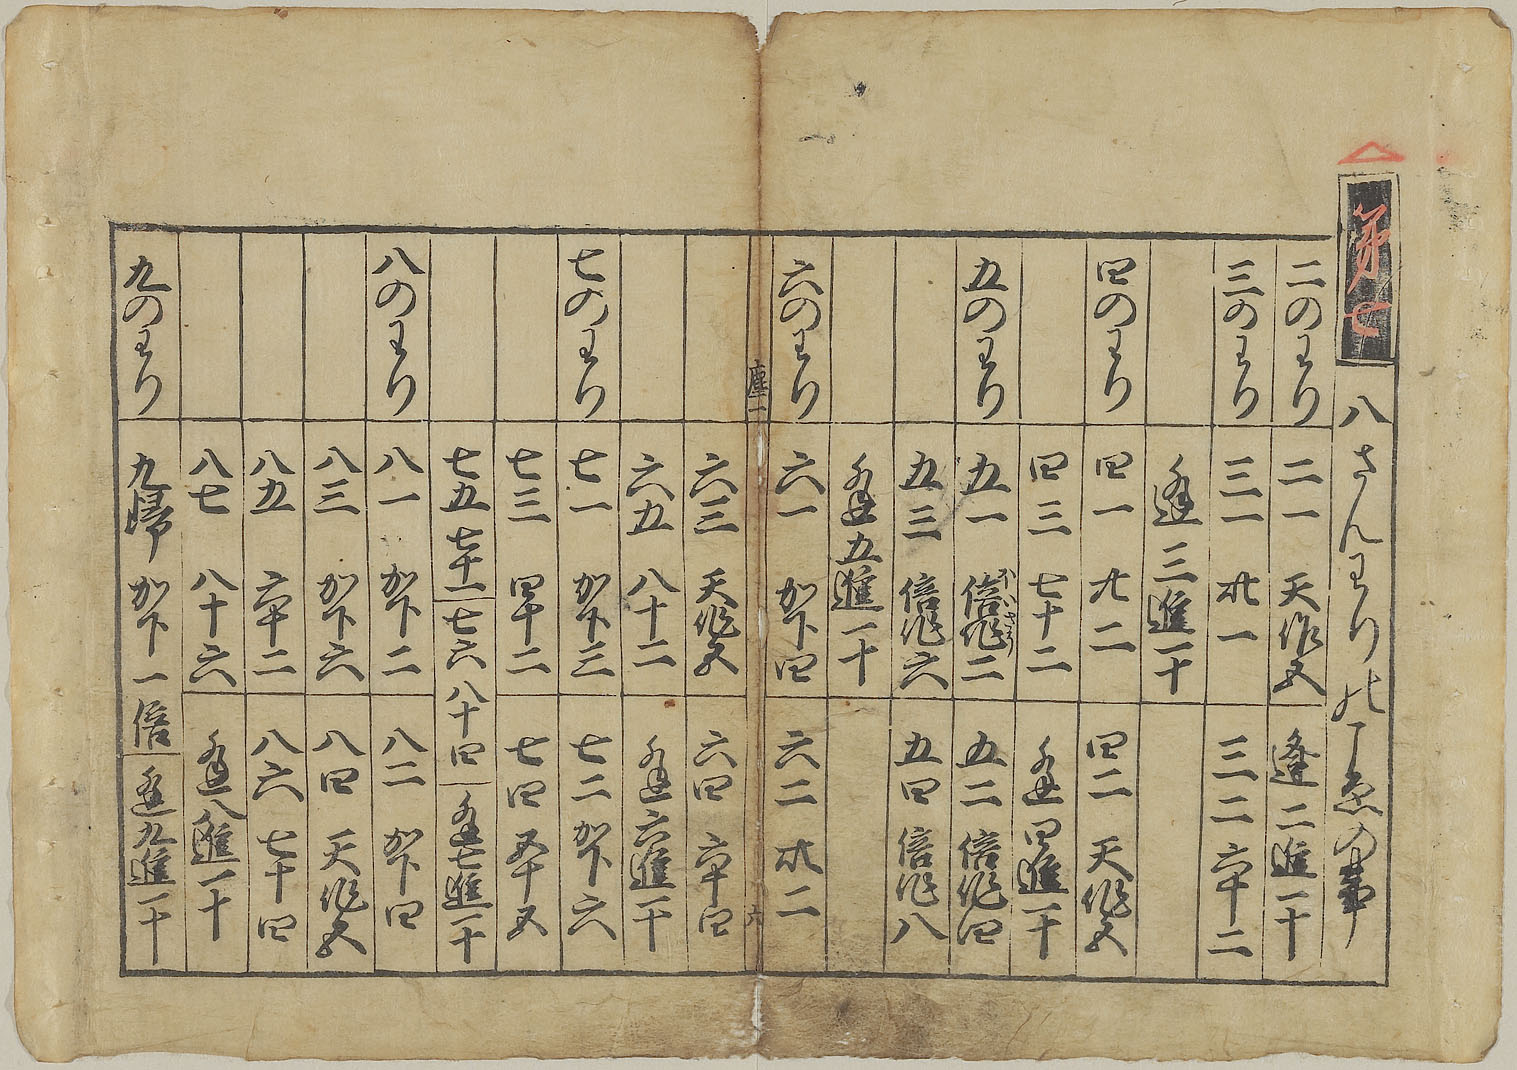 第七
八さんわりのこゑの事
二のわり 二一 天作五 逢二進一十
三のわり 三一 卅一 三二 六十二
逢三進一十
四のわり 四一 廿二 四二 天作五
四三 七十二 逢四進一十
五のわり 五一 倍作二 五二 倍作四
五三 倍作六 五四 倍作八
逢五進一十
六のわり 六一 加下四 六二 卅二
塵一 六
六三 天作五 六四 六十四
六五 八十二 逢六進一十
七のわり 七一 加下三 七二 加下六
七三 四十二 七四 五十五
七五 七十一 七六 八十四 逢七進一十
八のわり 八一 加下二 八二 加下四
八三 加下六 八四 天作五
八五 六十二 八六 七十四
八七 八十六 逢八進一十
九のわり 九帰 加下一倍 逢九進一十